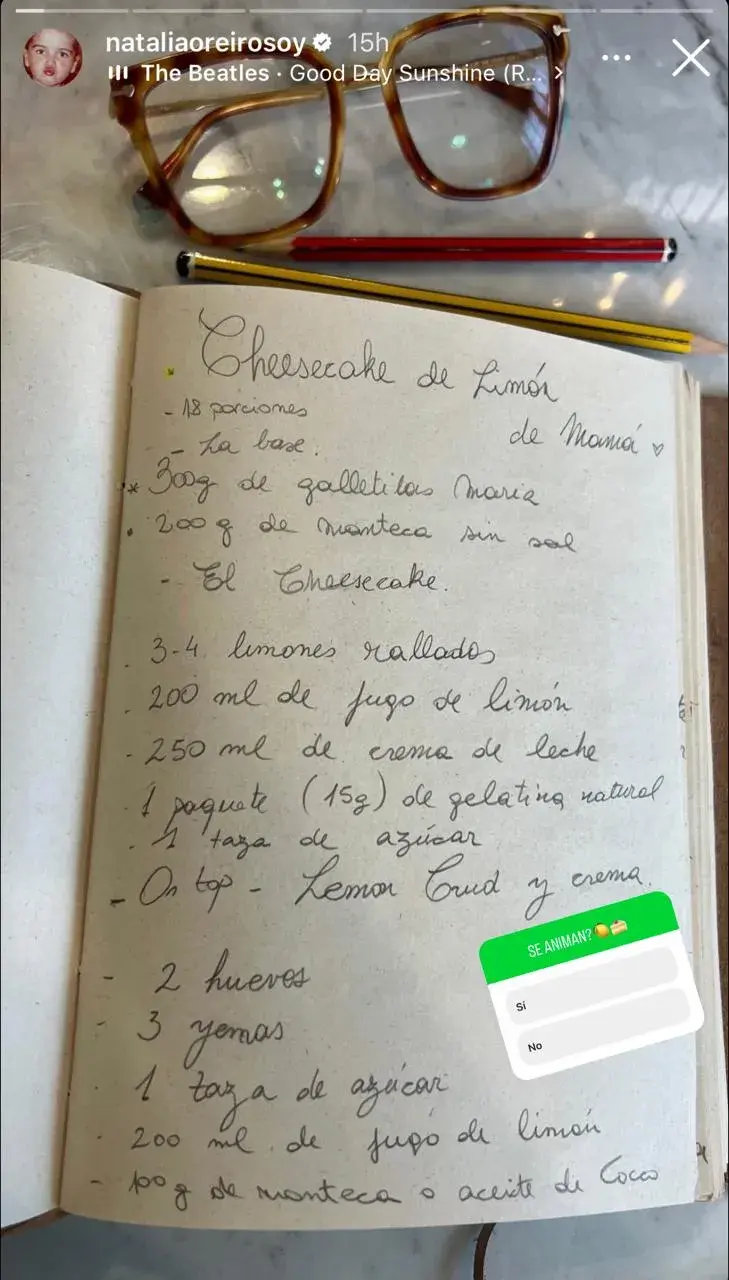 nataliaoreirosoy 15h
The Beatles · Good Day Sunshine (R... >
Cheesecake de Limón
de Mamá ♡
- 18 porciones
- La base.
* 300g de galletitas Maria
. 200 g de manteca sin sal
- El Cheesecake.
. 3-4 limones rallados
. 200 ml de jugo de limón
- 250 ml de crema de leche
. 1 paquete (15g) de gelatina natural
. 1 taza de azúcar
- On top - Lemon Crud y crema.
SE ANIMAN? 🍋🍰
Sí
No
- 2 huevos
- 3 yemas
. 1 taza de azúcar
. 200 ml. de jugo de limón
- 100 g de manteca o aceite de Coco